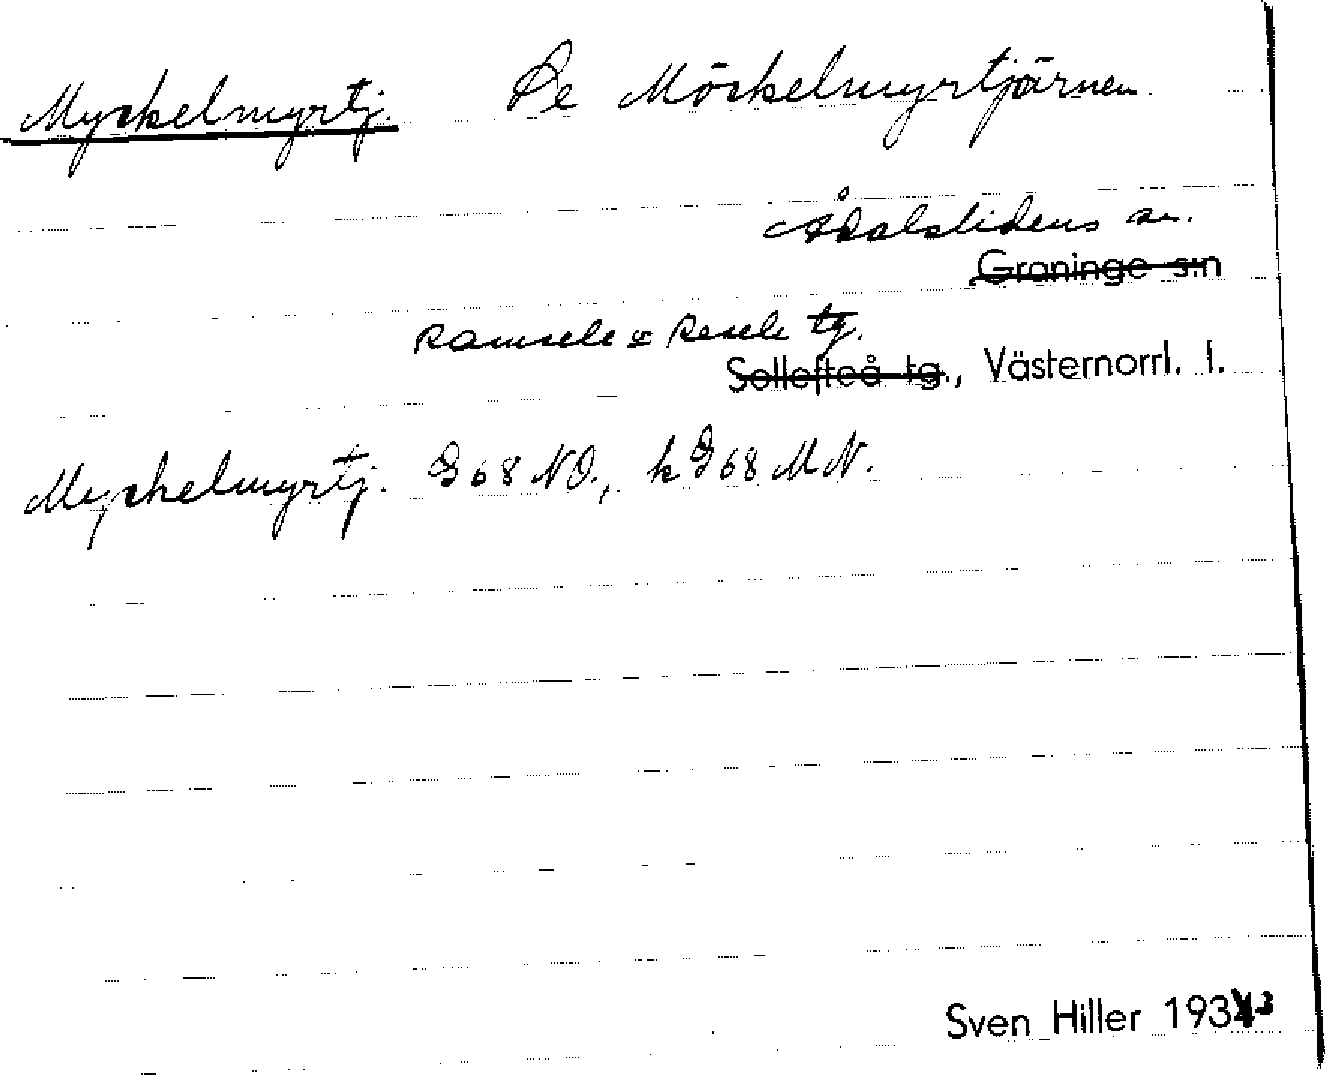 Myckelmyrtj. Se Möckelmyrtjärnen.
Ådalslidens sn.
Graninge s:n
Ramsele o Resele tg.
Sollefteå tg., Västernorrl. l.
Myckelmyrtj. G 68 NO., k G 68 M N.
Sven Hiller 193